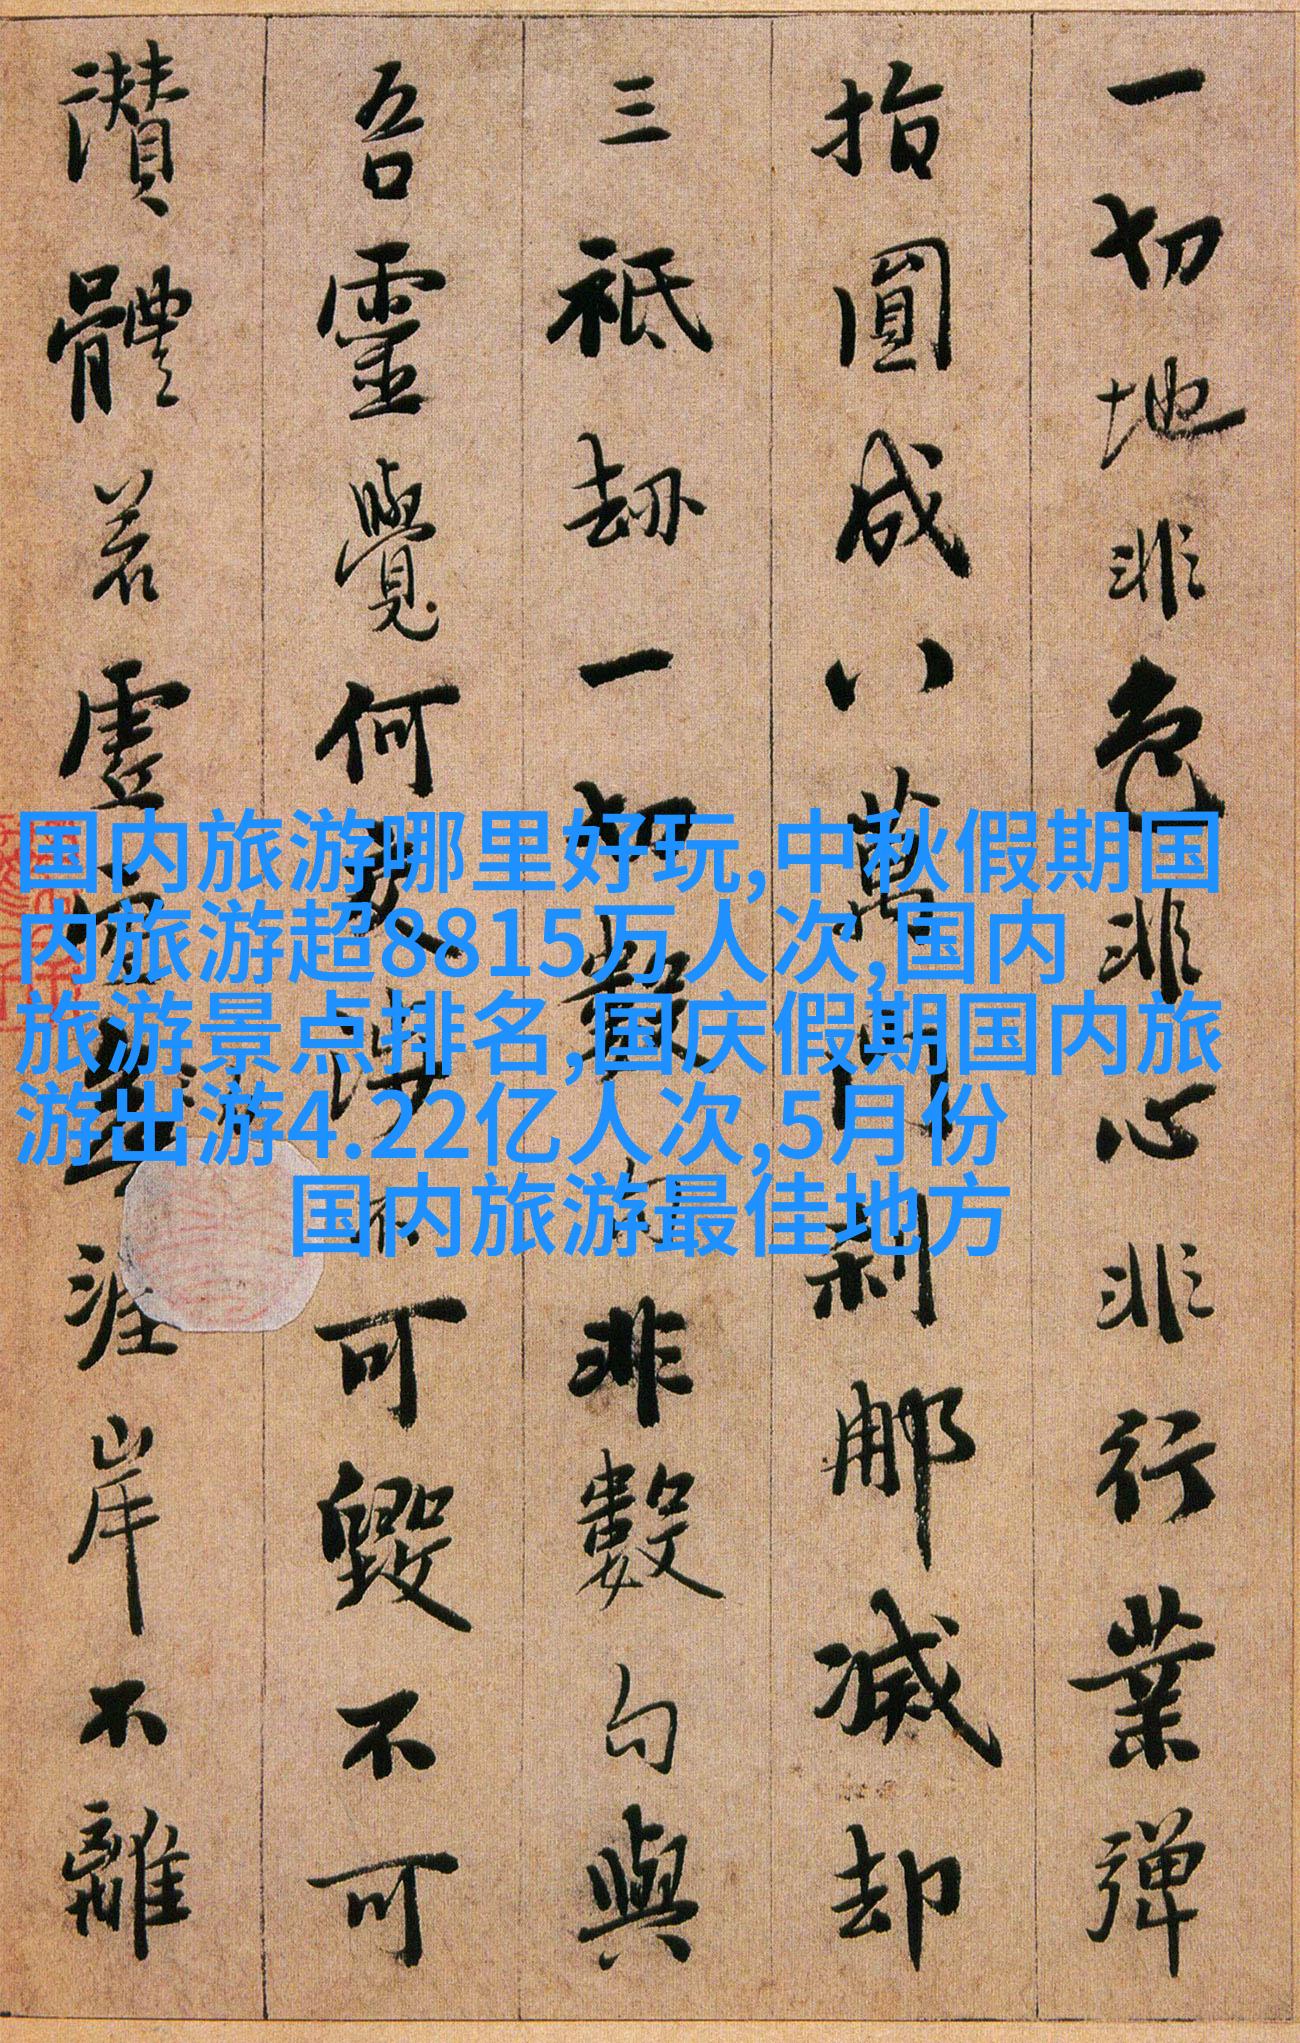 一切地非色非心非行業彈
指圓成八萬門刹那滅却
三祇劫一切數句非數句與
吾靈覺何交涉不可毀不可
讃體若虛空無涯岸不離
国内旅游哪里好玩,中秋假期国
内旅游超8815万人次,国内
旅游景点排名,国庆假期国内旅
游出游4.22亿人次,5月份
国内旅游最佳地方